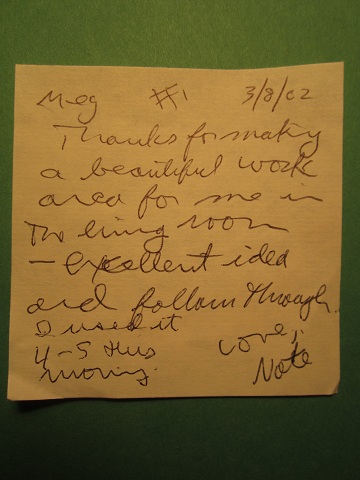 Meg #1 3/8/02
Thanks for making
a beautiful work
area for me in
the living room
- excellent idea
and follow through.
I used it
4-5 this
morning.
Love,
Nate